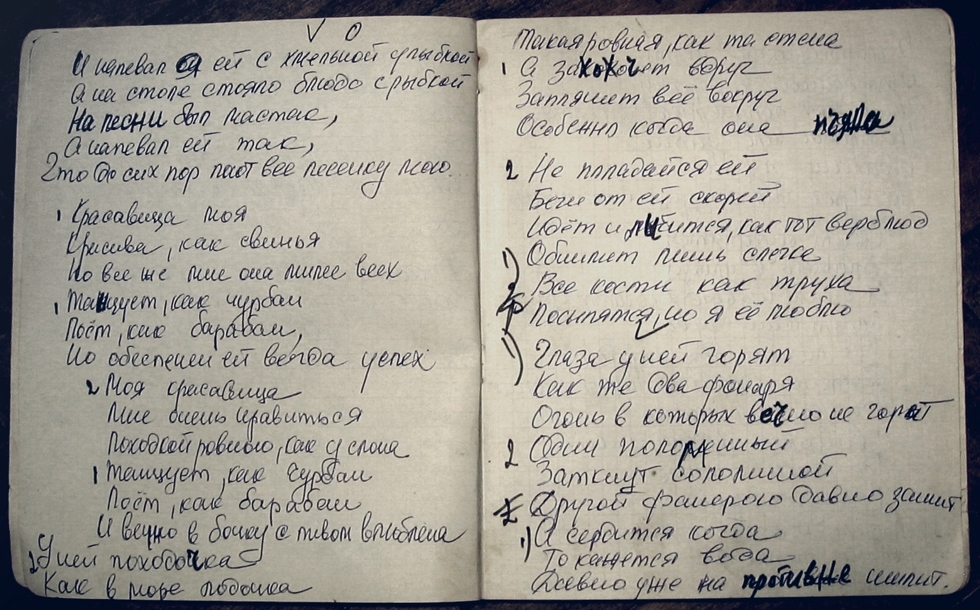 V O
И напевал он ей с хмельной улыбкой
А на столе стояло блюдо с рыбкой
На песни был мастак,
А напевал ей так,
Что до сих пор поют все песенку мою...
1 Красавица моя
Красива, как свинья
Но все же мне она милее всех
1 Танцует, как чурбан
Поёт, как барабан,
Но обеспечен ей всегда успех
2 Моя красавица
Мне очень нравиться
Походкой ровною, как у слона
1 Танцует, как чурбан
Поёт, как барабан
И вечно в бочку с пивом влюблена
2 У ней походочка
Как в море лодочка
Такая ровная, как та стена
1 А захохочет вдруг
Запляшет всё вокруг
Особенно когда она пьяна
2 Не попадайся ей
Беги от ей скорей
Идёт и лыбится, как тот верблюд
1) Обнимет лишь слегка
Все кости как труха
Посыпятся, но я её люблю
1) Глаза у ней горят
Как же два фонаря
Огонь в которых вечно не горит
2 Один положенный
Заткнут соломиной
2 Другой фанерою давно зашит
1) А сердится когда
То кажется вода
Давно уже на противне шипит.